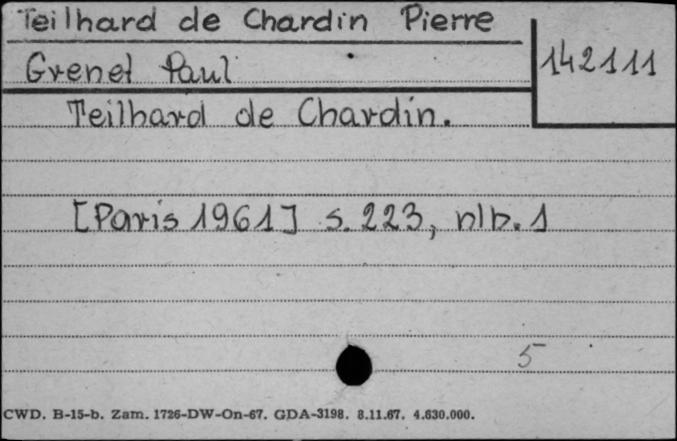 Teilhard de Chardin Pierre
142111
Grenet Paul
Teilhard de Chardin.
[Paris 1961] s. 223, nlb. 1
5
CWD. B-15-b. Zam. 1726-DW-On-67. GDA-3198. 8.11.67. 4.630.000.